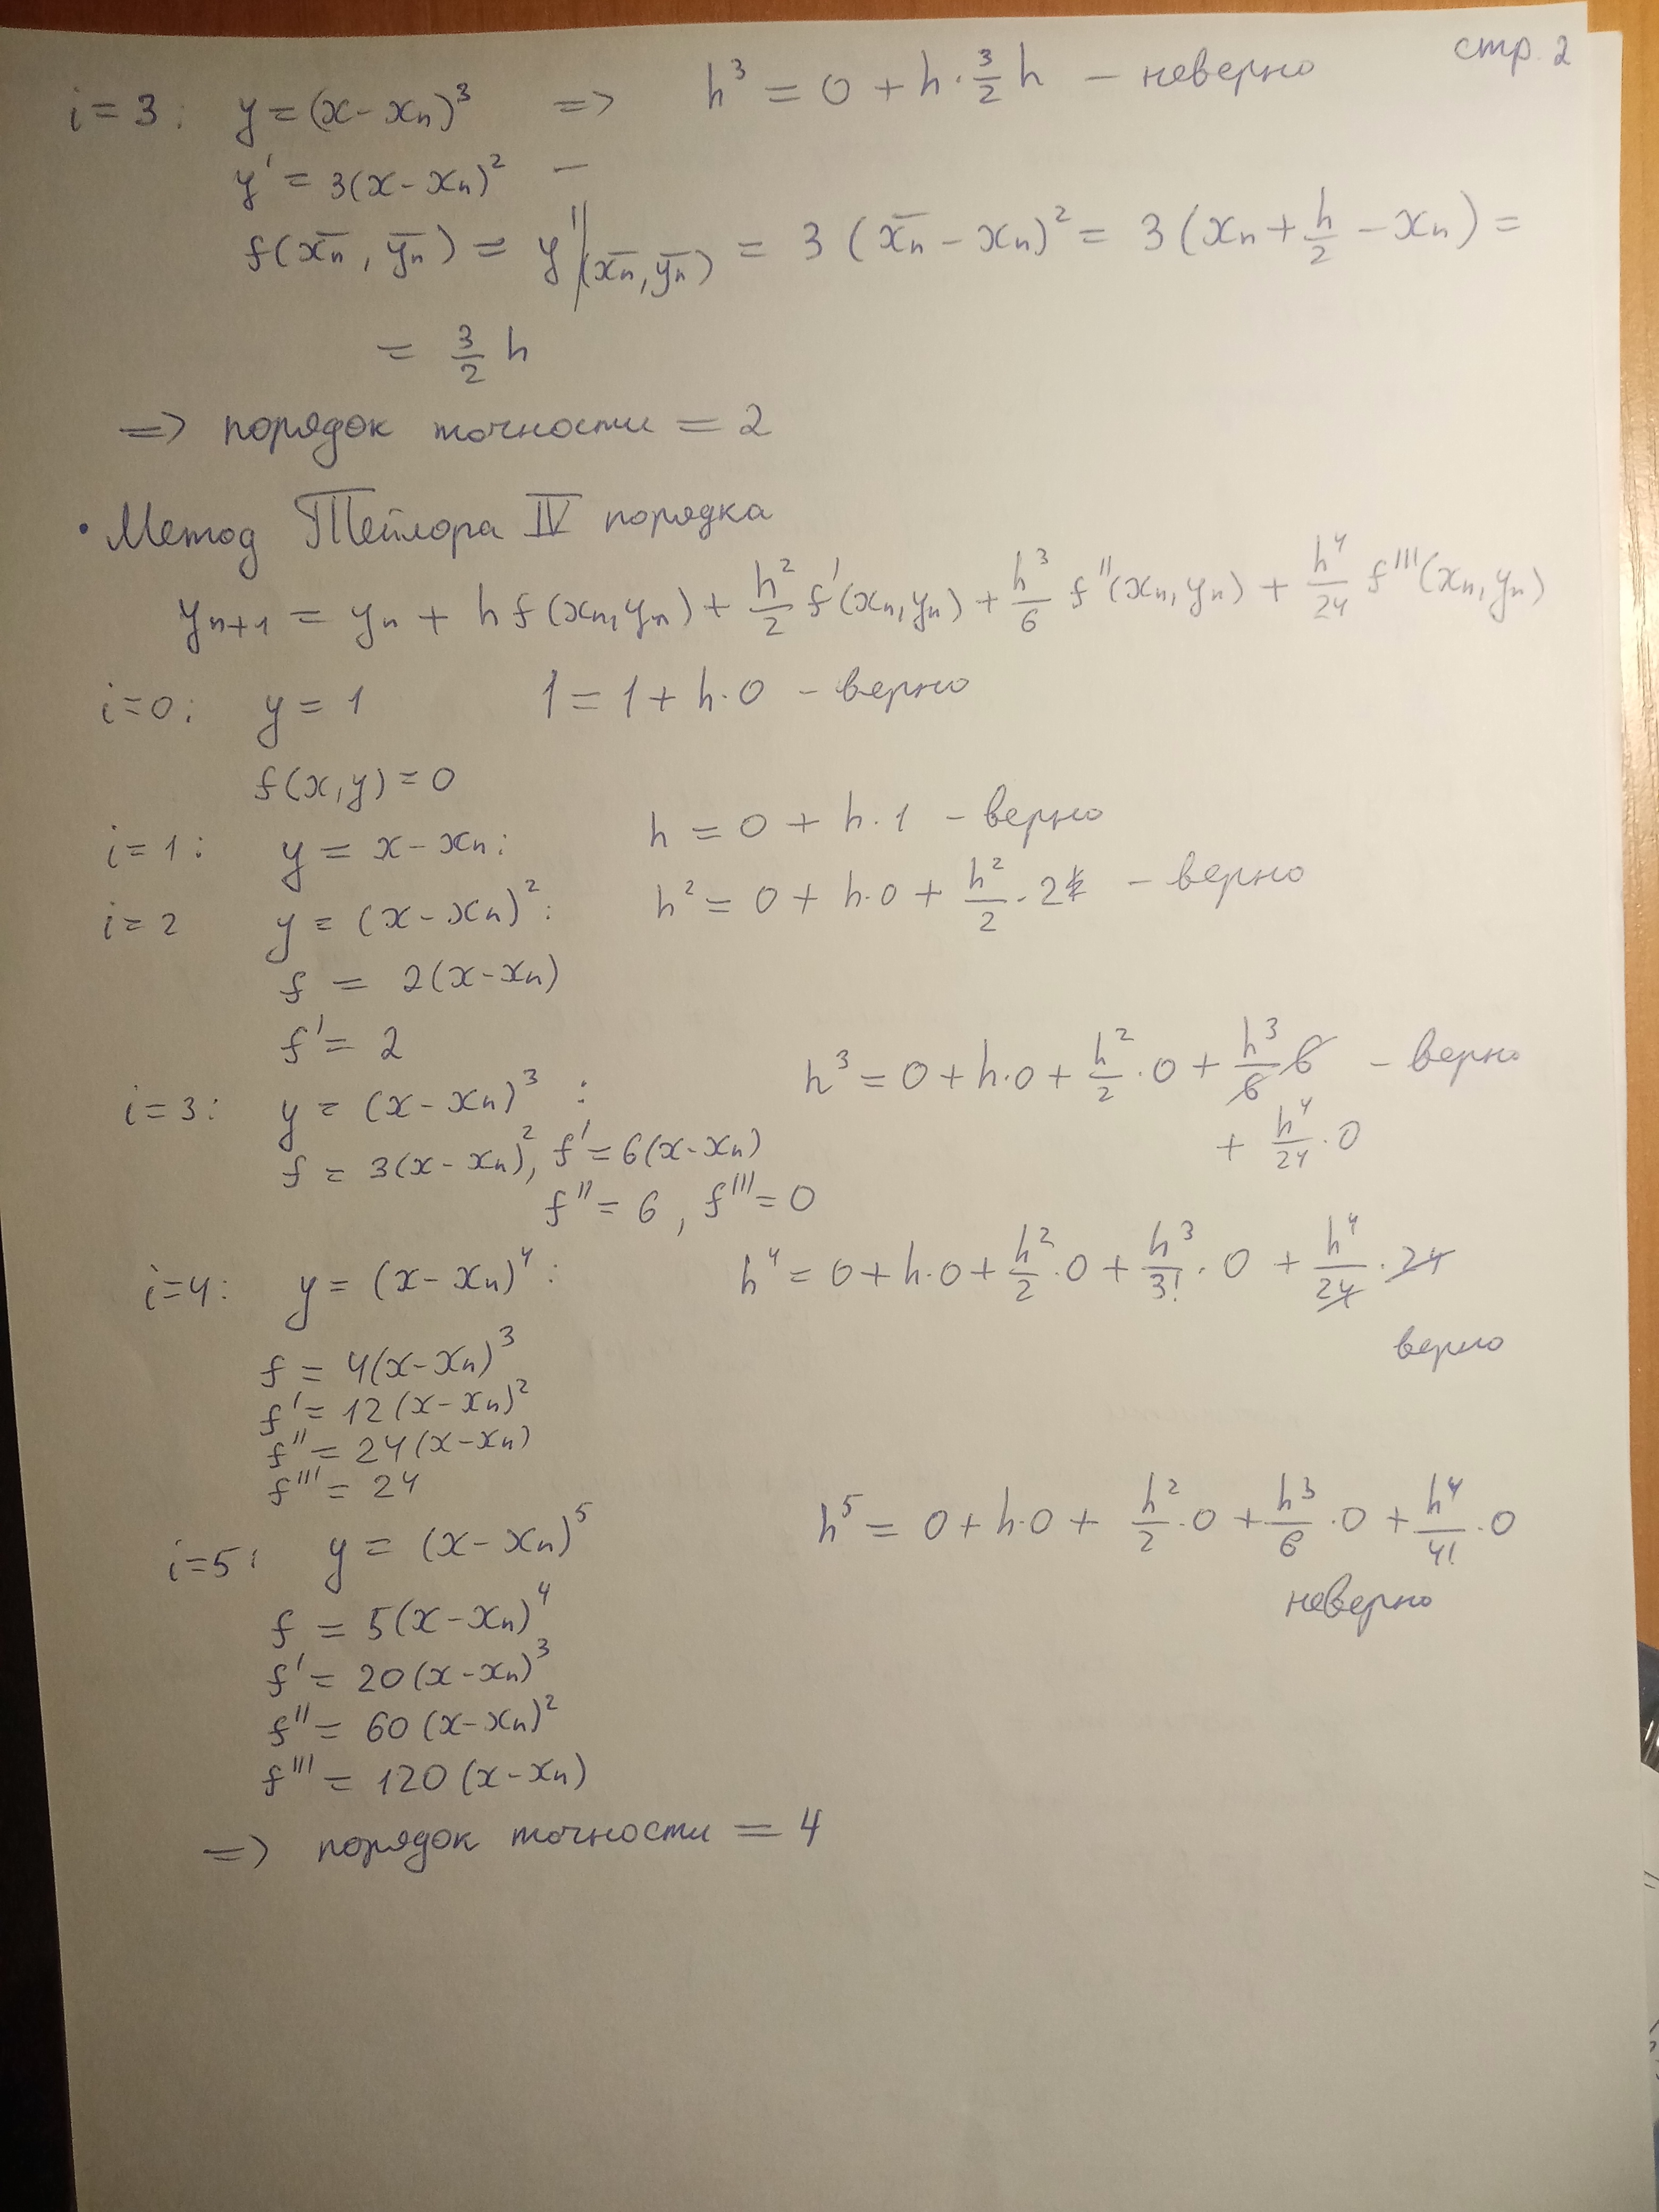 стр. 2
i = 3: y = (x - xₙ)³ => h³ = 0 + h · 3/2 h - неверно
y' = 3(x - xₙ)² —
f(x̄ₙ, ȳₙ) = y'|(x̄ₙ, ȳₙ) = 3 (x̄ₙ - xₙ)² = 3 (xₙ + h/2 - xₙ) =
= 3/2 h
=> порядок точности = 2
• Метод Тейлора IV порядка
yₙ₊₁ = yₙ + h f(xₙ, yₙ) + h²/2 f'(xₙ, yₙ) + h³/6 f''(xₙ, yₙ) + h⁴/24 f'''(xₙ, yₙ)
i=0: y = 1 1 = 1 + h·0 - верно
f(x, y) = 0
i = 1: y = x - xₙ: h = 0 + h · 1 - верно
i = 2 y = (x - xₙ)²: h² = 0 + h·0 + h²/2 · 2 - верно
f = 2(x - xₙ)
f' = 2
i = 3: y = (x - xₙ)³ : h³ = 0 + h·0 + h²/2 · 0 + h³/6 6 - верно
+ h⁴/24 · 0
f = 3(x - xₙ)², f' = 6(x - xₙ)
f'' = 6, f''' = 0
i=4: y = (x - xₙ)⁴ : h⁴ = 0 + h·0 + h²/2 · 0 + h³/3! · 0 + h⁴/24 · 24
верно
f = 4(x - xₙ)³
f' = 12(x - xₙ)²
f'' = 24(x - xₙ)
f''' = 24
i=5: y = (x - xₙ)⁵ h⁵ = 0 + h·0 + h²/2 · 0 + h³/6 · 0 + h⁴/4! · 0
неверно
f = 5(x - xₙ)⁴
f' = 20(x - xₙ)³
f'' = 60(x - xₙ)²
f''' = 120(x - xₙ)
=> порядок точности = 4